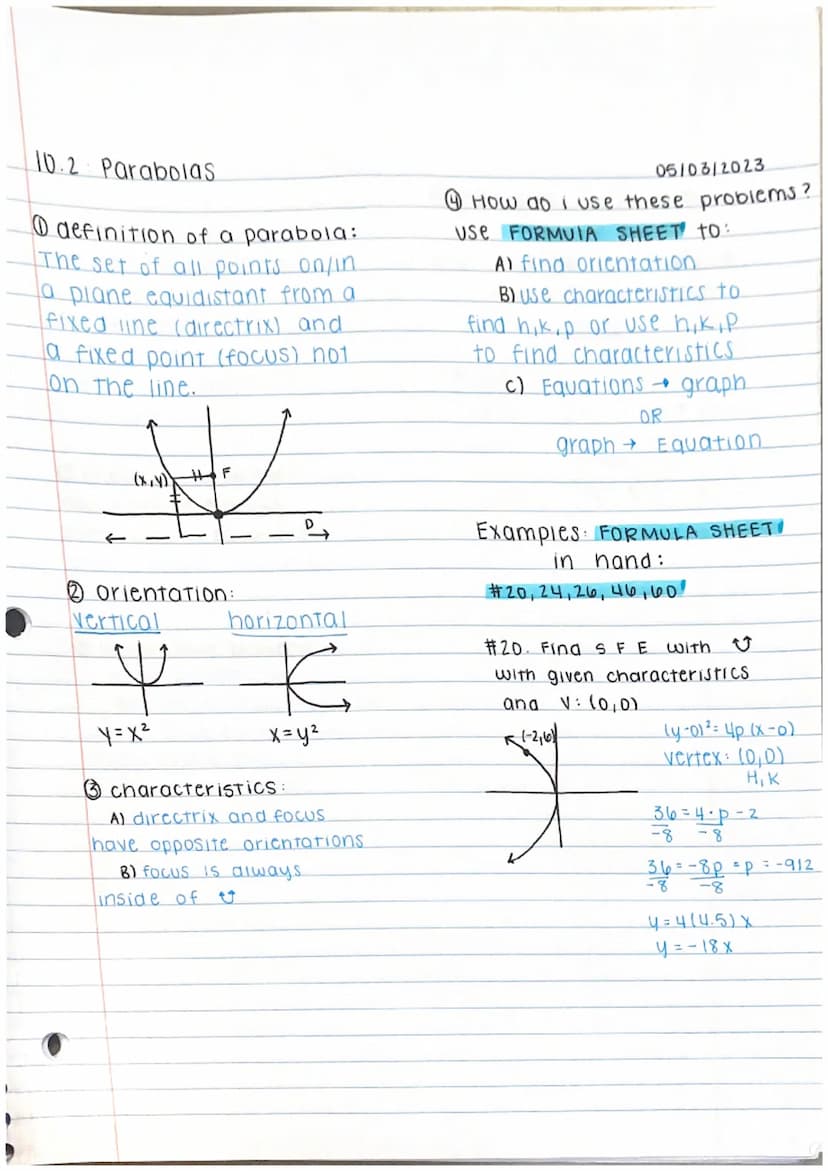 10.2 Parabolas
① definition of a parabola:
The set of all points on/in
a plane equidistant from a
fixed line (directrix) and
a fixed point (focus) not
on the line.
(x,y)
F
D
② orientation:
vertical horizontal
y=x² x=y²
③ characteristics:
A) directrix and focus
have opposite orientations
B) focus is always
inside of
05/03/2023
④ How do i use these problems?
use FORMULA SHEET to:
A) find orientation
B) use characteristics to
find h,k,p or use h,k,p
to find characteristics
c) Equations → graph
OR
graph → Equation
Examples: FORMULA SHEET
in hand:
#20, 24, 26, 46, 60
#20. Find S F E with
with given characteristics
and V: (0,0)
(-2,6)
(y-0)²= 4p (x-0)
vertex: (0,0)
H,K
36 = 4·p - 2
-8 -8
36 = -8p = p = -912
-8 -8
y = 4(4.5) x
y = -18x